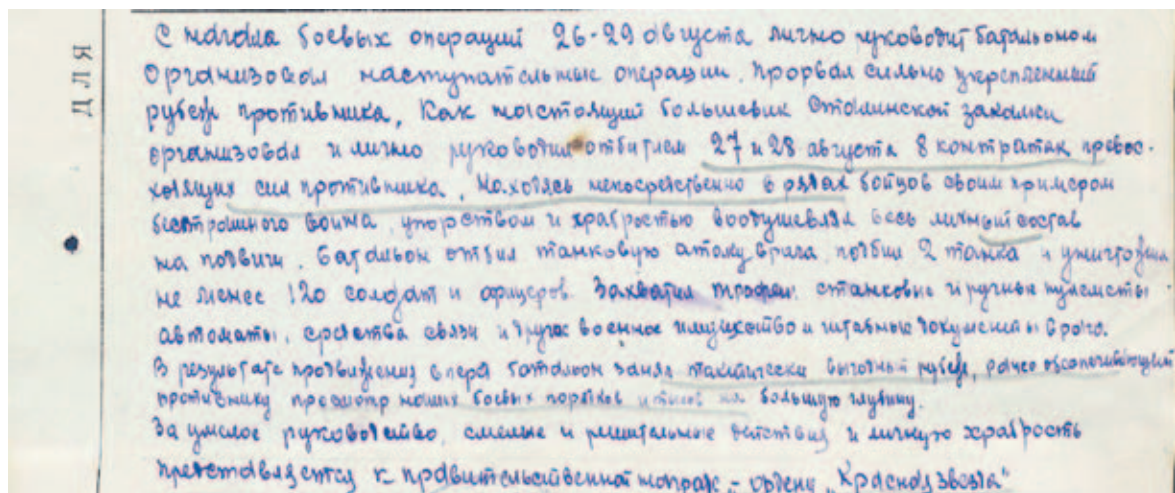 ДЛЯ
С начала боевых операций 26-29 августа лично руководит батальоном
Организовал наступательные операции. Прорвал сильно укрепленный
рубеж противника. Как настоящий большевик Сталинской закалки
организовал и лично руководил отбитием 27 и 28 августа 8 контратак превос-
ходящих сил противника. Находясь непосредственно в рядах бойцов своим примером
бесстрашного воина, упорством и храбростью воодушевлял весь личный состав
на подвиги. Батальон отбил танковую атаку врага, подбил 2 танка и уничтожил
не менее 120 солдат и офицеров. Захватил трофеи: станковые и ручные пулеметы
автоматы, средства связи и другое военное имущество и штабные документы врага.
В результате продвижения вперед батальон занял тактически выгодный рубеж, ранее обеспечивающий
противнику просмотр наших боевых порядков и тылов на большую глубину.
За умелое руководство, смелые и решительные действия и личную храбрость
представляется к правительственной награде - ордену „Красная звезда"